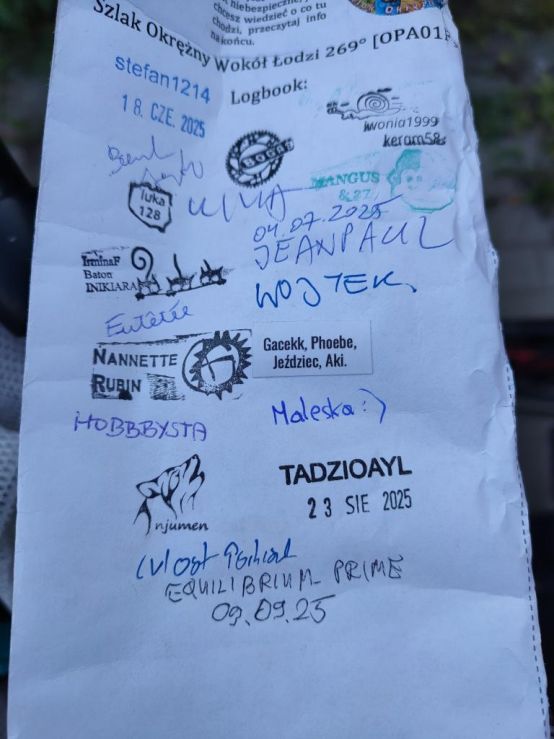 niebezpieczne
chcesz wiedzieć o co tu
chodzi, przeczytaj info
na końcu.
Szlak Okrężny Wokół Łodzi 269° [OPA01
Logbook:
stefan1214
18. CZE. 2025
iwonia1999
keram58
MANGUS
&27
luka
128
04.07.2025
JEANPAUL
IrminaF
Baton
INIKIARA
WOJTEK
NANNETTE
RUBIN
Gacekk, Phoebe,
Jeździec, Aki.
HOBBBYSTA
Maleska :)
njumen
TADZIOAYL
23 SIE 2025
EQUILIBRIUM PRIME
09.09.25